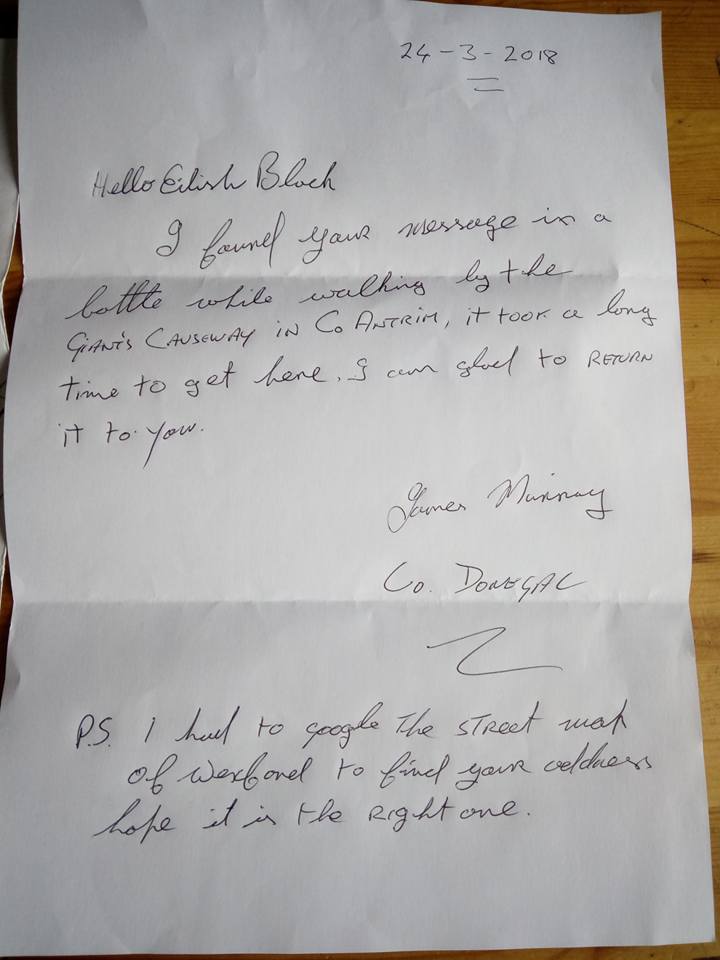 24-3-2018
Hello Eilish Black
I found your message in a
bottle while walking by the
GIANT'S CAUSEWAY IN CO ANTRIM, it took a long
time to get here. I am glad to RETURN
it to you.
James Murray
Co. DONEGAL
P.S. I had to google the street map
of Wexford to find your address
hope it is the right one.